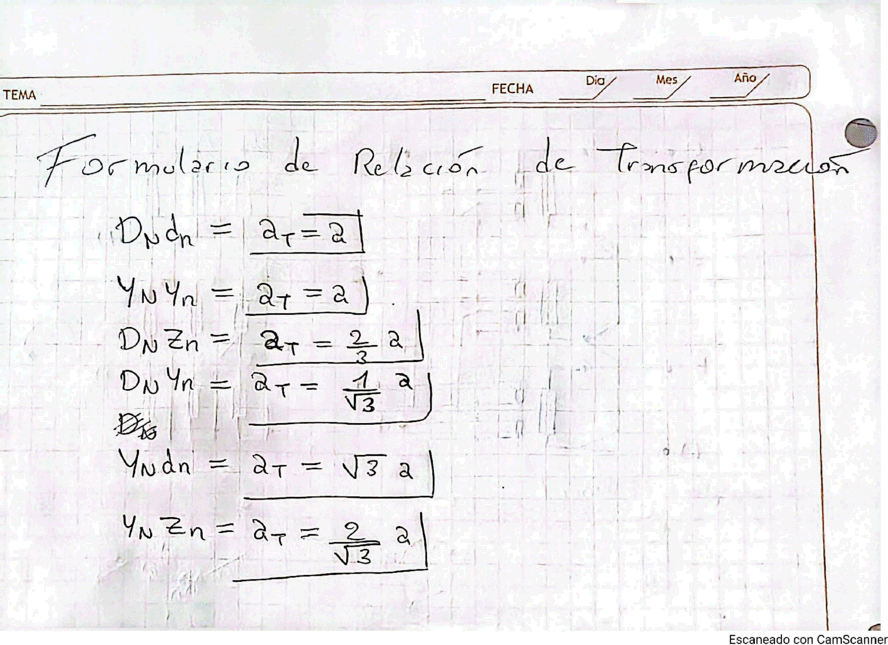 TEMA FECHA Dia Mes Año
Formulario de Relación de Transformación
D_N d_n = a_T = a
Y_N Y_n = a_T = a
D_N Z_n = a_T = 2/3 a
D_N Y_n = a_T = 1/√3 a
Y_N d_n = a_T = √3 a
Y_N Z_n = a_T = 2/√3 a
Escaneado con CamScanner